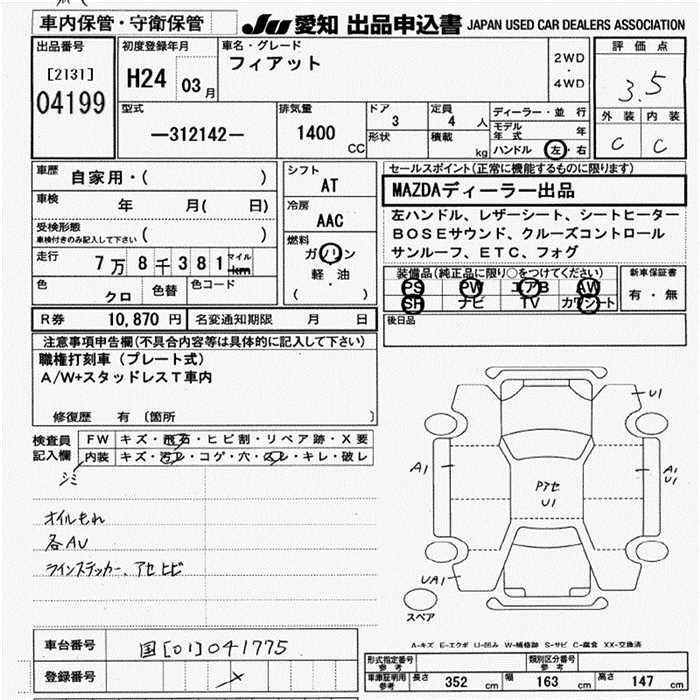 車内保管・守衛保管
JU 愛知 出品申込書 JAPAN USED CAR DEALERS ASSOCIATION
出品番号
[2131]
04199
初度登録年月
H24 03月
車名・グレード
フィアット
2WD
・
4WD
評価点
3.5
外装 内装
C C
型式
—312142—
排気量
1400
CC
ドア
3
形状
定員
4 人
積載
kg
ディーラー・並行
モデル年式 年
ハンドル 左・右
車歴
自家用・( )
車検
年 月( 日)
受検形態
車検付きのみ記入して下さい ( )
走行
7万8千381 マイル km
色
クロ
色替
色コード
シフト
AT
冷房
AAC
燃料
ガソリン
軽・油
( )
セールスポイント(正常に機能するものに限ります)
MAZDAディーラー出品
左ハンドル、レザーシート、シートヒーター
BOSEサウンド、クルーズコントロール
サンルーフ、ETC、フォグ
装備品(純正品に限り○をつけてください)
PS PW エアB AW
SR ナビ TV カワシート
新車保証書
有・無
R券 10,870 円 名変通知期限 月 日
後日品
注意事項申告欄(不具合内容等は具体的に記入して下さい)
職権打刻車(プレート式)
A/W+スタッドレスT車内
修復歴 有 〔箇所 〕
検査員
記入欄
FW キズ・飛石・ヒビ割・リペア跡・X要
内装 キズ・汚レ・コゲ・穴・スレ・キレ・破レ
シミ
オイルもれ
各AU
ラインステッカー、アセヒビ
U1
A1
Pアセ
U1
A1
U1
UA1
スペア
A-キズ E-エクボ U-凹み W-補修跡 S-サビ C-腐食 XX-交換済
車台番号 国[01]041775
登録番号
形式指定番号
参考
類別区分番号
参考
車庫証明用
参考
長さ 352 cm 幅 163 cm 高さ 147 cm